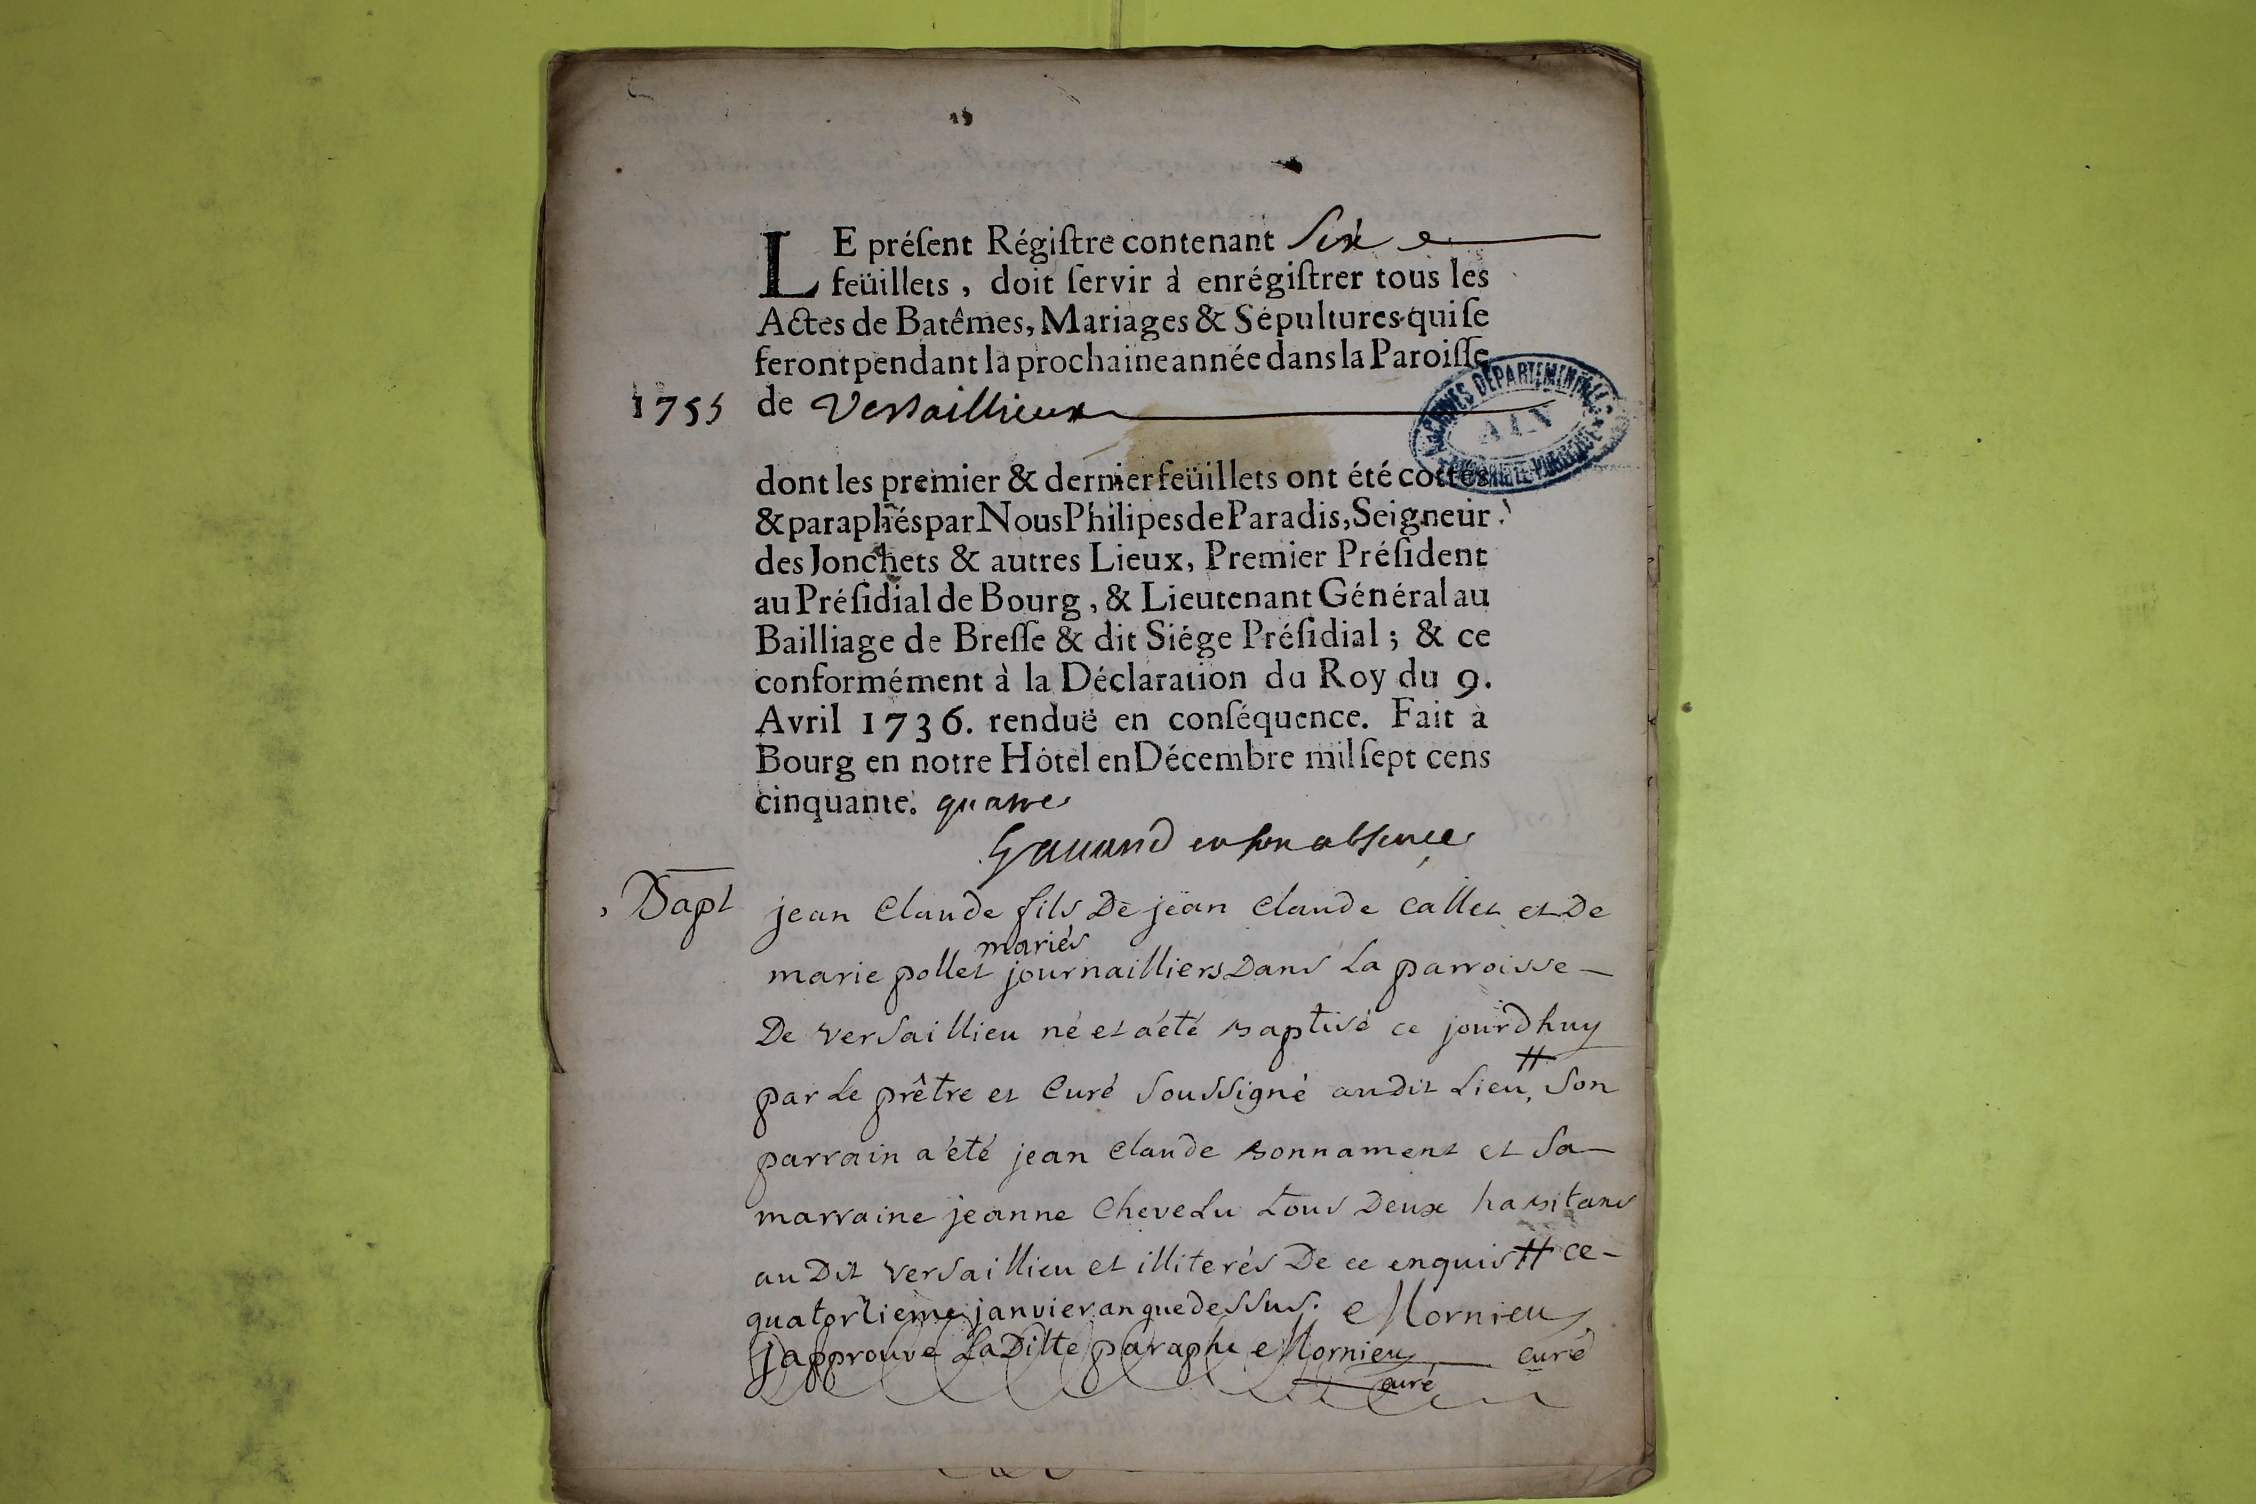 LE préſent Régiſtre contenant Six
feüillets, doit ſervir à enrégiſtrer tous les
Actes de Batêmes, Mariages & Sépultures qui ſe
feront pendant la prochaine année dans la Paroiſſe
1755 de Versaillieux
ARCHIVES DÉPARTEMENTALES
AIN
PROPRIÉTÉ PUBLIQUE
dont les premier & dernier feüillets ont été cottés
& paraphés par Nous Philipes de Paradis, Seigneur
des Jonchets & autres Lieux, Premier Préſident
au Préſidial de Bourg, & Lieutenant Général au
Bailliage de Breſſe & dit Siége Préſidial; & ce
conformément à la Déclaration du Roy du 9.
Avril 1736. renduë en conſéquence. Fait à
Bourg en notre Hôtel en Décembre mil ſept cens
cinquante. quatre
en son absence
Bapt jean Claude fils De jean Claude Callet et De
mariés
marie pollet journailliers Dans La parroisse
De Versaillieu né et a été Baptisé ce jourdhuy
par Le prêtre et Curé Soussigné audit Lieu # Son
parrain a été jean Claude Bonnament et Sa
marraine jeanne Chevelu tous Deux habitans
au Dit Versaillieu et illiterés De ce enquis # ce
quatorzieme janvier an que dessus. Mornieu
curé
japprouve La Ditte paraphe Mornieu
curé